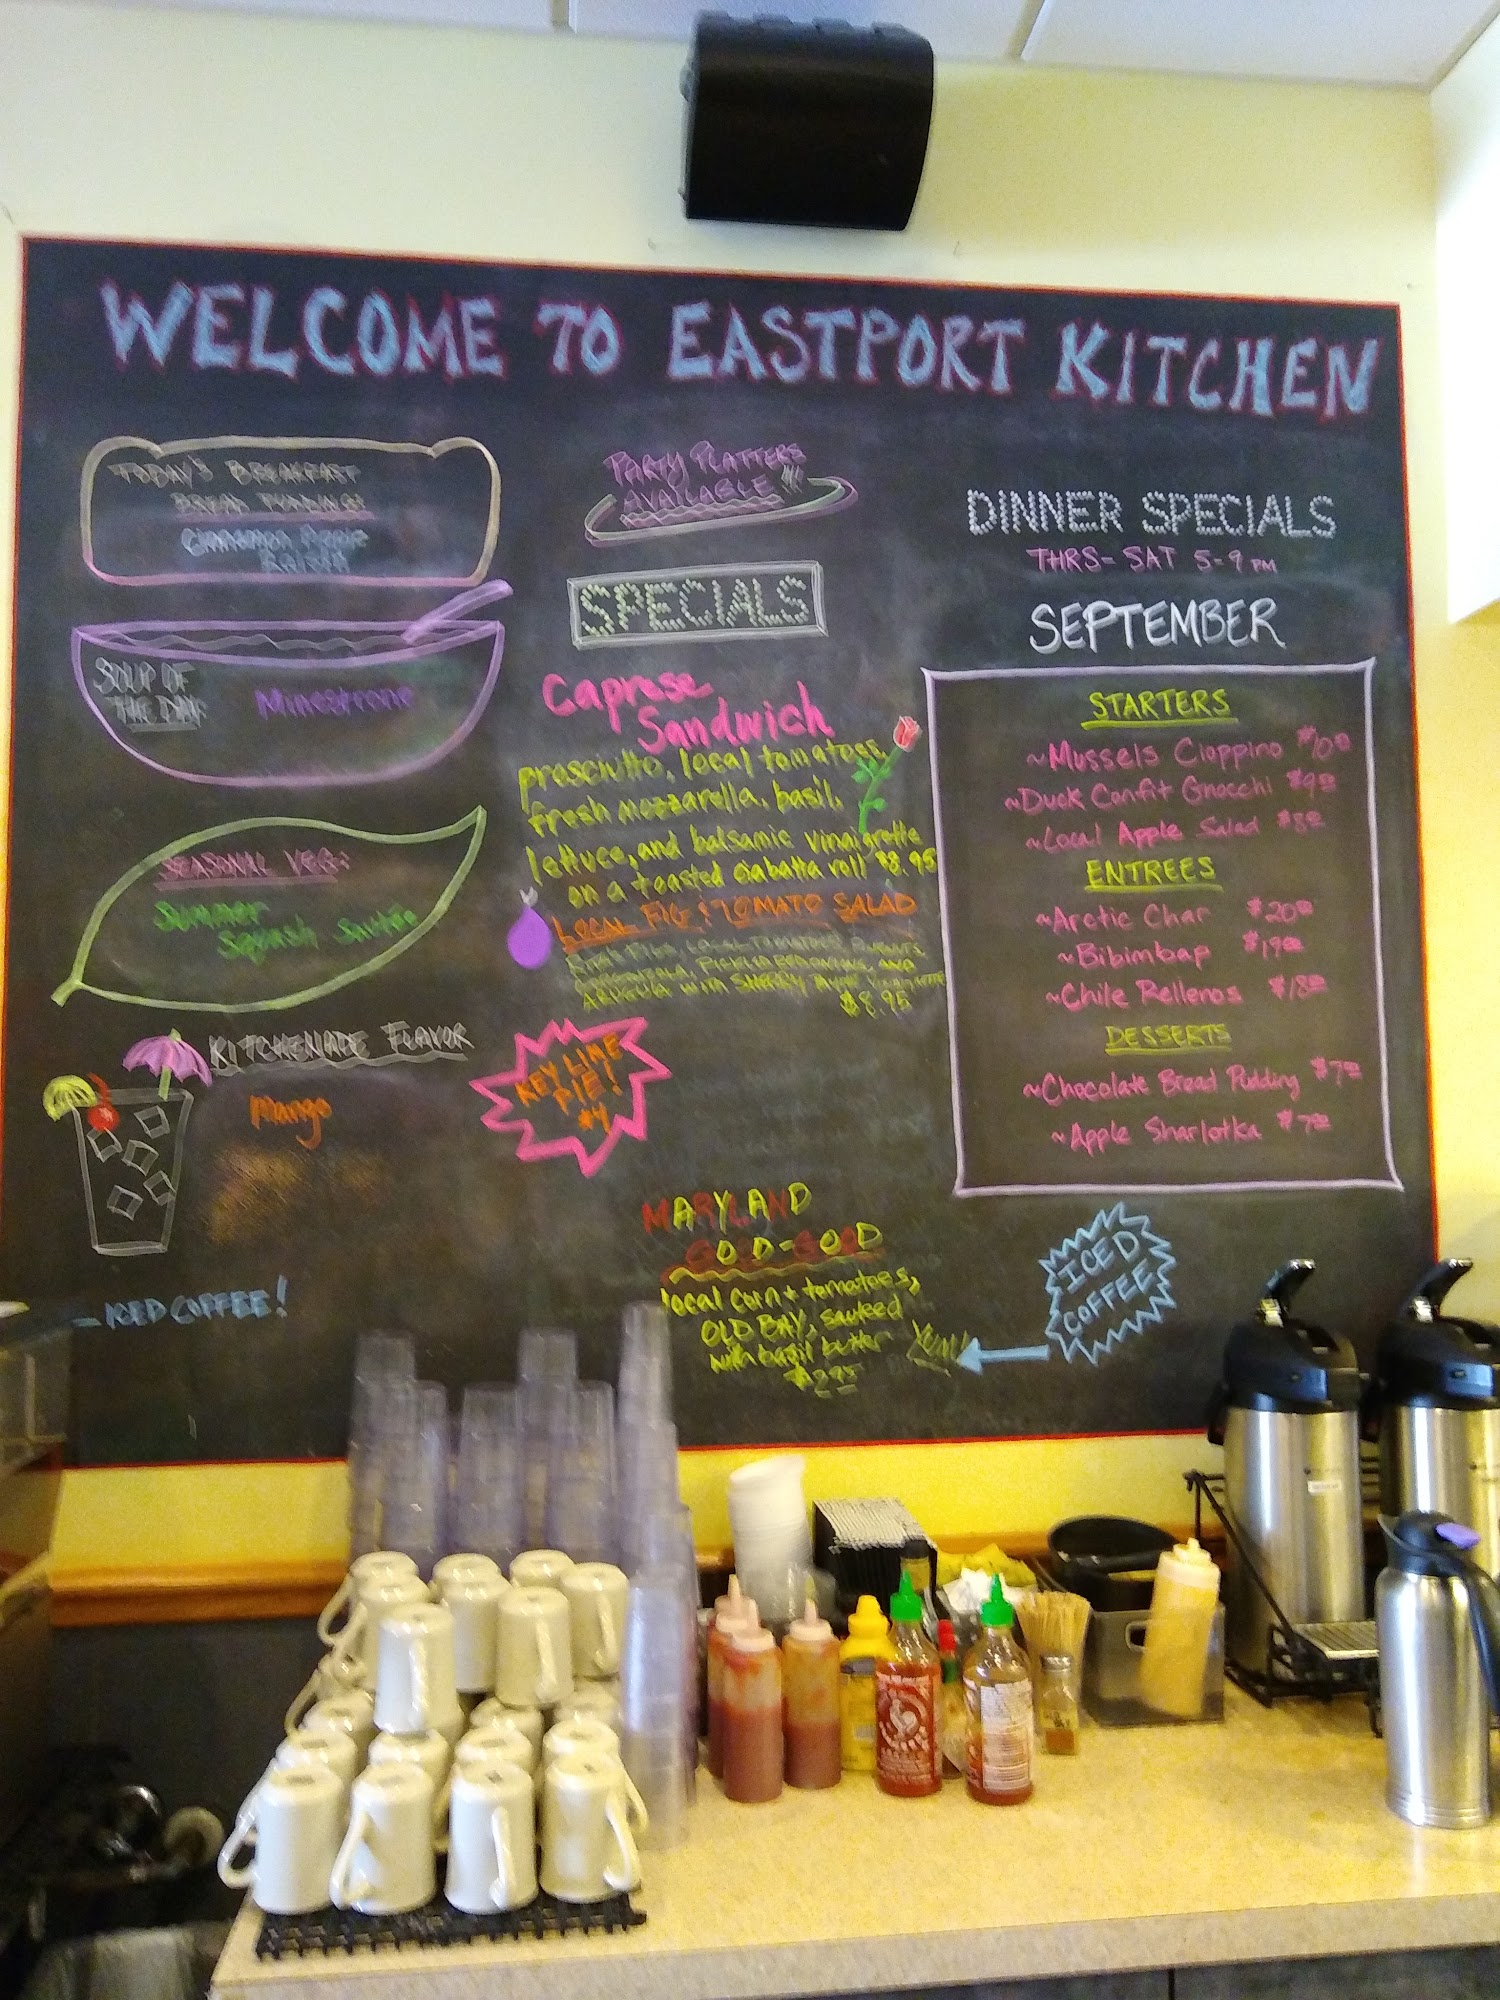 WELCOME TO EASTPORT KITCHEN
TODAY'S BREAKFAST
BREAD PUDDING:
Cinnamon Apple
Raisin
SOUP OF
THE DAY
Minestrone
SEASONAL VEG:
Summer
Squash Sautée
KITCHENADE FLAVOR
Mango
- ICED COFFEE!
PARTY PLATTERS
AVAILABLE !!!
SPECIALS
Caprese
Sandwich
prosciutto, local tomatoes,
fresh mozzarella, basil,
lettuce, and balsamic vinaigrette
on a toasted ciabatta roll $8.95
LOCAL FIG & TOMATO SALAD
FIGS, LOCAL TOMATOES,
GORGONZOLA, PICKLED RED ONIONS, AND
ARUGULA WITH SHERRY THYME VINAIGRETTE
$8.95
KEY LIME
PIE!
$4
MARYLAND
GOOD-GOOD
local corn + tomatoes,
OLD BAY, sauteed
with basil butter
$2.95
YUM!
ICED
COFFEE
DINNER SPECIALS
THRS- SAT 5-9 PM
SEPTEMBER
STARTERS
~Mussels Cioppino $10.00
~Duck Confit Gnocchi $9.00
~Local Apple Salad $8.00
ENTREES
~Arctic Char $20.00
~Bibimbap $19.00
~Chile Rellenos $18.00
DESSERTS
~Chocolate Bread Pudding $7.00
~Apple Sharlotka $7.00